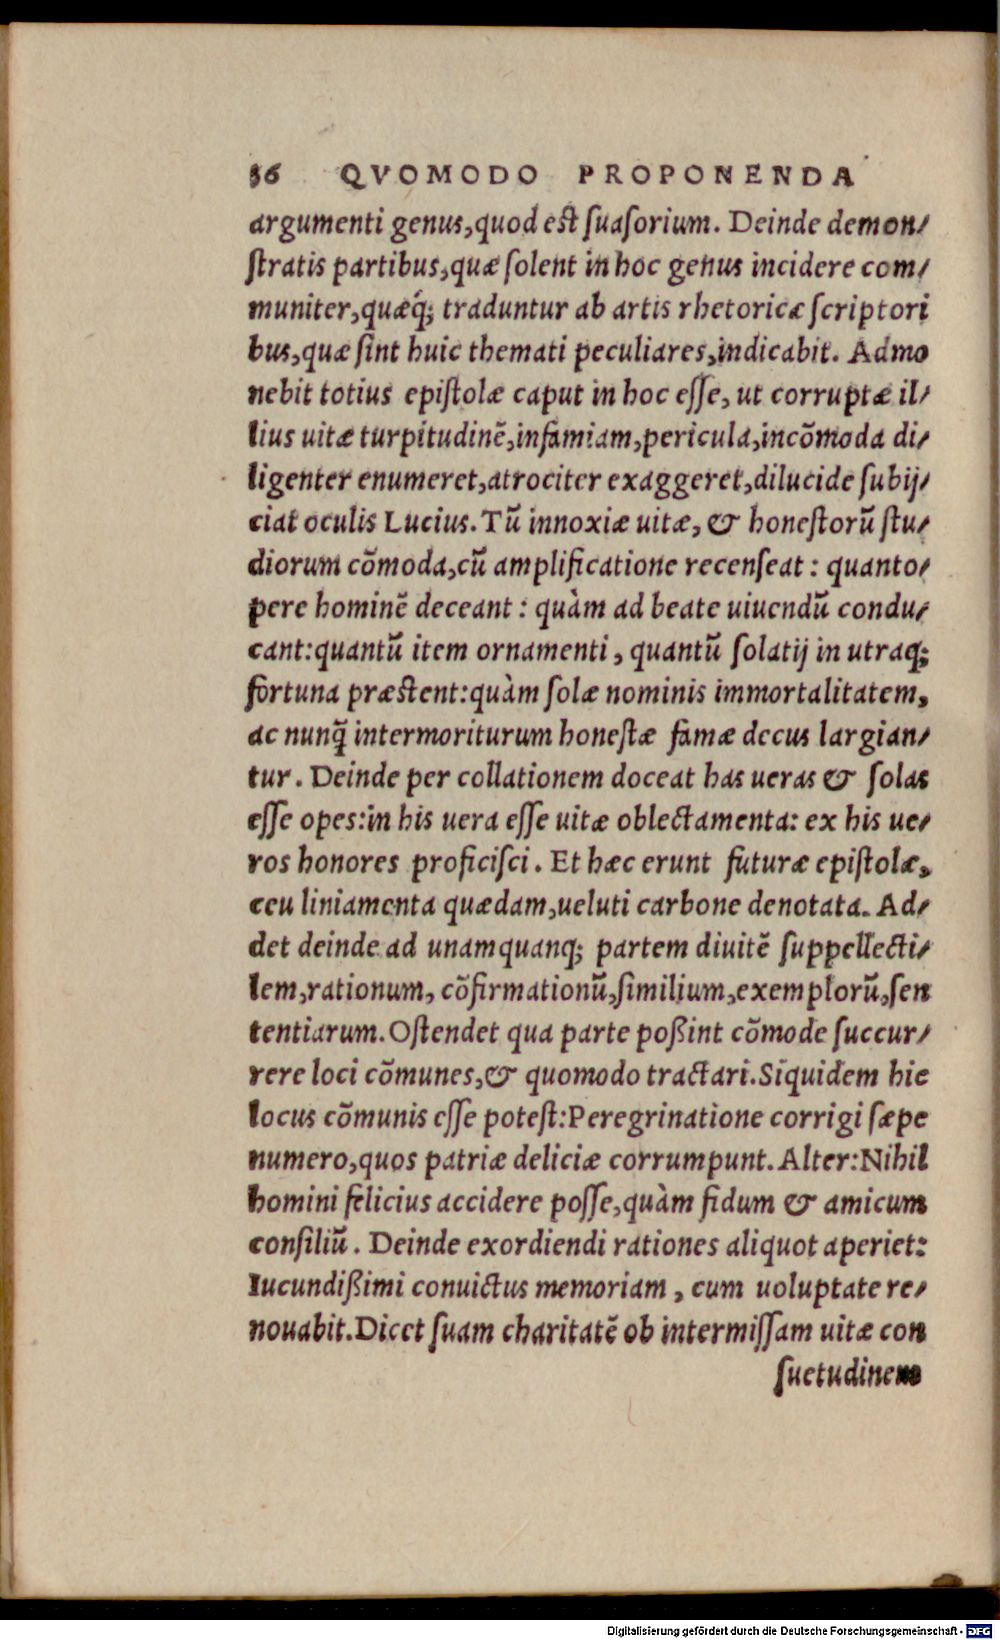 36 QVOMODO PROPONENDA
argumenti genus,quod est ſuaſorium. Deinde demon/
ſtratis partibus,quæ ſolent in hoc genus incidere com/
muniter,quæq́; traduntur ab artis rhetoricæ ſcriptori
bus,quæ ſint huic themati peculiares,indicabit. Admo
nebit totius epiſtolæ caput in hoc eſſe, ut corruptæ il/
lius uitæ turpitudinē,infamiam,pericula,incōmoda di/
ligenter enumeret,atrociter exaggeret,dilucide ſubij/
ciat oculis Lucius. Tū innoxiæ uitæ, & honeſtorū ſtu/
diorum cōmoda,cū amplificatione recenſeat : quanto/
pere hominē deceant : quàm ad beate uiuendū condu/
cant:quantū item ornamenti , quantū ſolatij in utraq;
fortuna præstent:quàm ſolæ nominis immortalitatem,
ac nunq̄ intermoriturum honeſtæ famæ decus largian/
tur . Deinde per collationem doceat has ueras & ſolas
eſſe opes:in his uera eſſe uitæ oblectamenta: ex his ue/
ros honores proficiſci . Et hæc erunt futuræ epiſtolæ,
ceu liniamenta quædam,ueluti carbone denotata. Ad/
det deinde ad unamquanq; partem diuitē ſuppellecti/
lem,rationum, cōfirmationū,ſimilium,exemplorū,ſen
tentiarum. Oſtendet qua parte poßint cōmode ſuccur/
rere loci cōmunes,& quomodo tractari. Siquidem hic
locus cōmunis eſſe poteſt:Peregrinatione corrigi ſæpe
numero,quos patriæ deliciæ corrumpunt. Alter:Nihil
homini felicius accidere poſſe,quàm fidum & amicum
conſiliū . Deinde exordiendi rationes aliquot aperiet:
Iucundißimi conuictus memoriam , cum uoluptate re/
nouabit. Dicet ſuam charitatē ob intermiſſam uitæ con
ſuetudinem
Digitalisierung gefördert durch die Deutsche Forschungsgemeinschaft - DFG